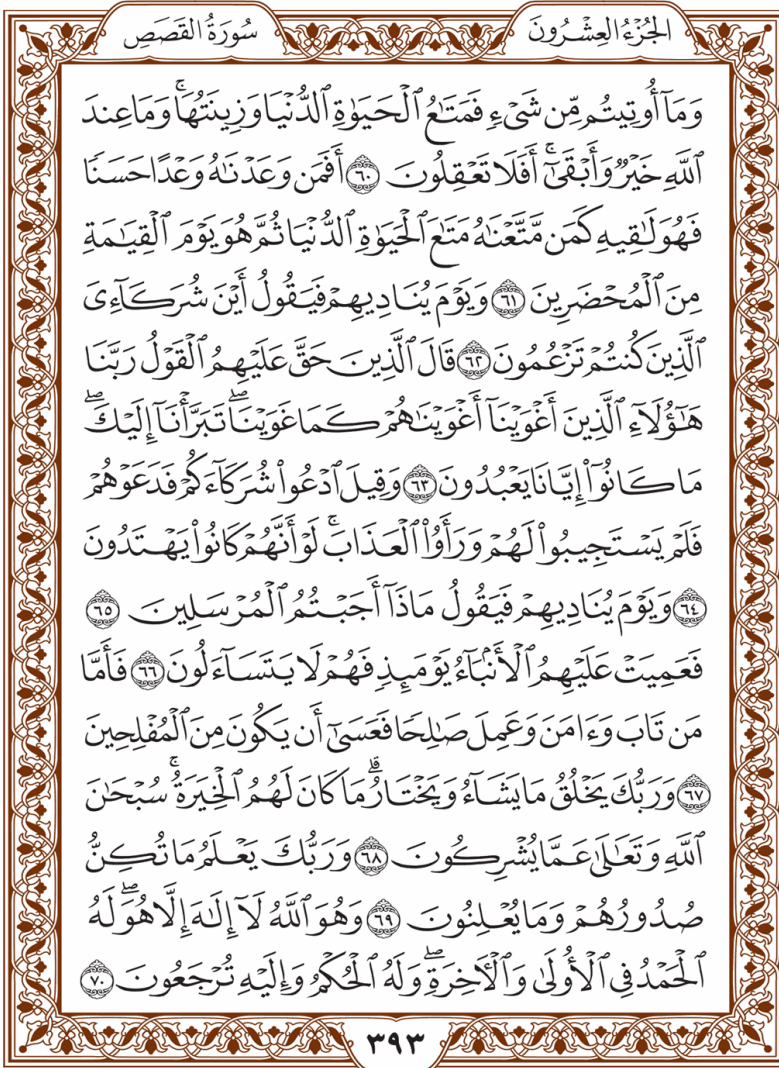 الجُزْءُ العِشْرُونَ
سُورَةُ القَصَصِ
وَمَآ أُوتِيتُم مِّن شَىْءٍ فَمَتَٰعُ ٱلْحَيَوٰةِ ٱلدُّنْيَا وَزِينَتُهَاۚ وَمَا عِندَ
ٱللَّهِ خَيْرٌ وَأَبْقَىٰٓۚ أَفَلَا تَعْقِلُونَ ٦٠ أَفَمَن وَعَدْنَٰهُ وَعْدًا حَسَنًا
فَهُوَ لَٰقِيهِ كَمَن مَّتَّعْنَٰهُ مَتَٰعَ ٱلْحَيَوٰةِ ٱلدُّنْيَا ثُمَّ هُوَ يَوْمَ ٱلْقِيَٰمَةِ
مِنَ ٱلْمُحْضَرِينَ ٦١ وَيَوْمَ يُنَادِيهِمْ فَيَقُولُ أَيْنَ شُرَكَآءِىَ
ٱلَّذِينَ كُنتُمْ تَزْعُمُونَ ٦٢ قَالَ ٱلَّذِينَ حَقَّ عَلَيْهِمُ ٱلْقَوْلُ رَبَّنَا
هَٰٓؤُلَآءِ ٱلَّذِينَ أَغْوَيْنَآ أَغْوَيْنَٰهُمْ كَمَا غَوَيْنَاۖ تَبَرَّأْنَآ إِلَيْكَۖ
مَا كَانُوٓا۟ إِيَّانَا يَعْبُدُونَ ٦٣ وَقِيلَ ٱدْعُوا۟ شُرَكَآءَكُمْ فَدَعَوْهُمْ
فَلَمْ يَسْتَجِيبُوا۟ لَهُمْ وَرَأَوُا۟ ٱلْعَذَابَۚ لَوْ أَنَّهُمْ كَانُوا۟ يَهْتَدُونَ
٦٤ وَيَوْمَ يُنَادِيهِمْ فَيَقُولُ مَاذَآ أَجَبْتُمُ ٱلْمُرْسَلِينَ ٦٥
فَعَمِيَتْ عَلَيْهِمُ ٱلْأَنۢبَآءُ يَوْمَئِذٍ فَهُمْ لَا يَتَسَآءَلُونَ ٦٦ فَأَمَّا
مَن تَابَ وَءَامَنَ وَعَمِلَ صَٰلِحًا فَعَسَىٰٓ أَن يَكُونَ مِنَ ٱلْمُفْلِحِينَ
٦٧ وَرَبُّكَ يَخْلُقُ مَا يَشَآءُ وَيَخْتَارُۗ مَا كَانَ لَهُمُ ٱلْخِيَرَةُۚ سُبْحَٰنَ
ٱللَّهِ وَتَعَٰلَىٰ عَمَّا يُشْرِكُونَ ٦٨ وَرَبُّكَ يَعْلَمُ مَا تُكِنُّ
صُدُورُهُمْ وَمَا يُعْلِنُونَ ٦٩ وَهُوَ ٱللَّهُ لَآ إِلَٰهَ إِلَّا هُوَۖ لَهُ
ٱلْحَمْدُ فِى ٱلْأُولَىٰ وَٱلْءَاخِرَةِۖ وَلَهُ ٱلْحُكْمُ وَإِلَيْهِ تُرْجَعُونَ ٧٠
٣٩٣